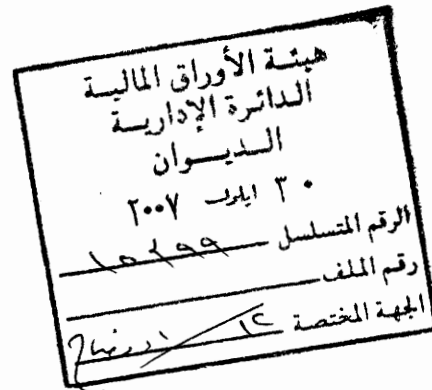 هيئة الأوراق المالية
الدائرة الإدارية
الديوان
٣٠ ايلول ٢٠٠٧
الرقم المتسلسل
رقم الملف
الجهة المختصة ١٢